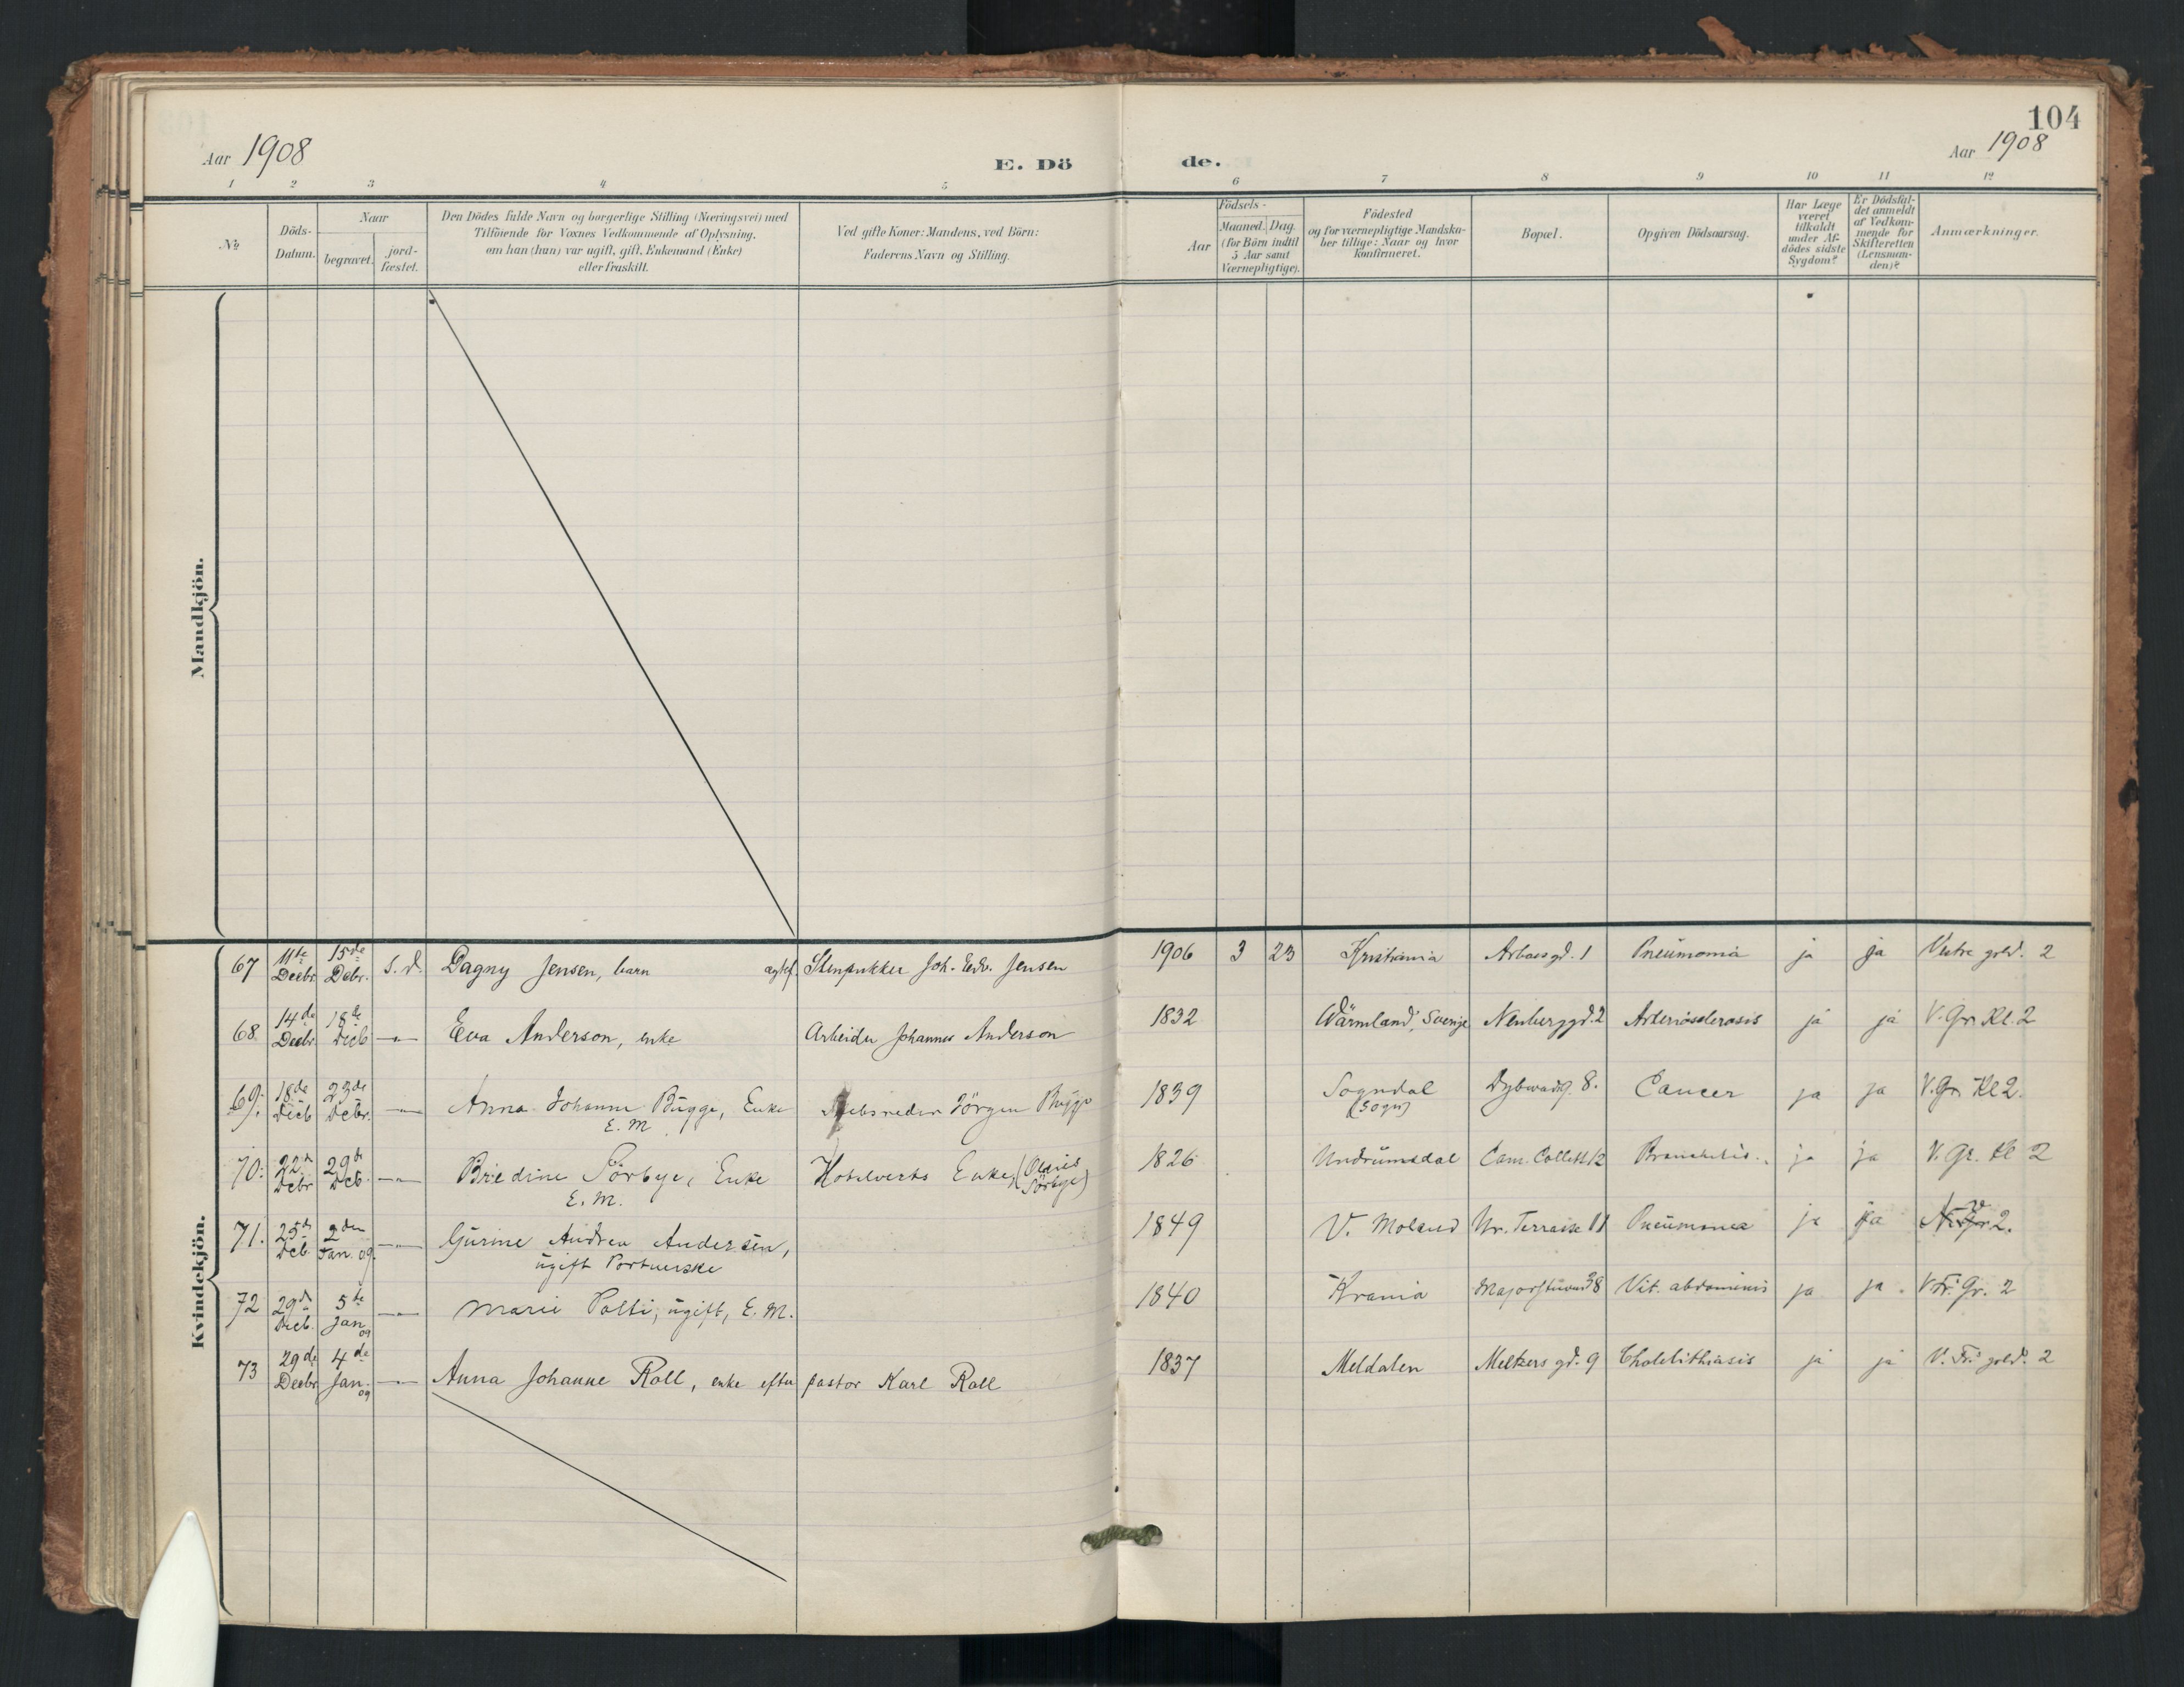 104
Aar 1908
E. Dö de.
Aar 1908
1 2 3 4 5 6 7 8 9 10 11 12
№
Döds-
Datum.
Naar
begravet.
jord-
fæstet.
Den Dödes fulde Navn og borgerlige Stilling (Næringsvei) med
Tilföiende for Voxnes Vedkommende af Oplysning,
om han (hun) var ugift, gift, Enkemand (Enke)
eller fraskilt.
Ved gifte Koner: Mandens, ved Börn:
Faderens Navn og Stilling.
Födsels-
Aar
Maaned. Dag.
(for Börn indtil
5 Aar samt
Værnepligtige).
Födested
og for værnepligtige Mandska-
ber tillige: Naar og hvor
konfirmeret.
Bopæl.
Opgiven Dödsaarsag.
Har Læge
været
tilkaldt
under Af-
dödes sidste
Sygdom?
Er Dödsfal-
det anmeldt
af Vedkom-
mende for
Skifteretten
(Lensman-
den)?
Anmærkninger.
Mandkjön.
Kvindekjön.
67 11te Decbr. 15de Debr. S. d. Dagny Jensen, barn Stenpukker Joh. Edv. Jensen 1906 3 23 Kristiania gd. 1 Pneumonia ja ja Vestre grld. 2
68 14de Decbr 18de Decb —"— Eva Anderson, enke Arbeider Johannes Anderson 1832 Wärmland, Sverige Neuberggd. 2 Arteriosclerosis ja ja V. Gr. Kl. 2
69. 18de Decb 23de Debr. —"— Anna Johanne Bugge, Enke Skibsreder Jörgen Bugge 1839 Sogndal Dybwadsg. 8. Cancer ja ja V. Gr. Kl 2.
E. M. (Sogn)
70. 22de Debr 29de Deb. —"— Bredine Sörbye, Enke Hotelverts Enke, (Sörbye) 1826 Undrumsdal Cam. Colletts 12 Bronchitis. ja ja V. Gr. Kl 2
E. M.
71. 25de Deb. 2den Jan. 09. —"— Gurine Andrea Andersen, 1849 V. Moland Ur. Terrasse 11 Pneumonia ja ja V. 2.
ugift Portnerske
72 29de Decb. 5te Jan 09 —"— Marie Polti, ugift, E. M. 1840 Krania Majorstuvei 38 Vit. abdominis ja ja. V Fr. Gr. 2
73 29de Decbr 4de Jan. 09 —"— Anna Johanne Roll, enke efter pastor Karl Roll 1837 Meldalen Meltzers gd. 9 Cholelithiasis ja ja V. Fr. grld. 2